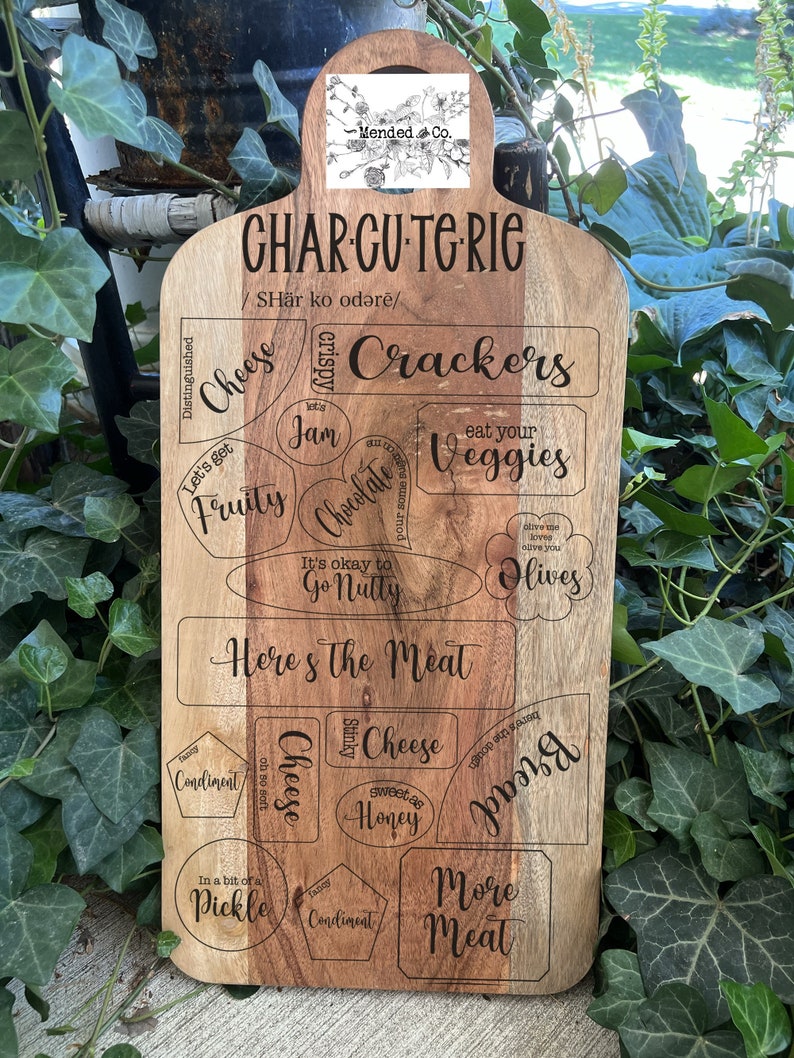 Mended and Co.
CHAR·CU·TE·RIE
/ SHär ko odərē/
Distinguished
Cheese
crispy
Crackers
let's
Jam
eat your
Veggies
Let's get
Fruity
Chocolate
pour some sugar on me
olive me
loves
olive you
Olives
It's okay to
Go Nutty
Here's the Meat
fancy
Condiment
Cheese
oh so soft
Stinky
Cheese
here's the dough
Bread
sweet as
Honey
In a bit of a
Pickle
fancy
Condiment
More
Meat